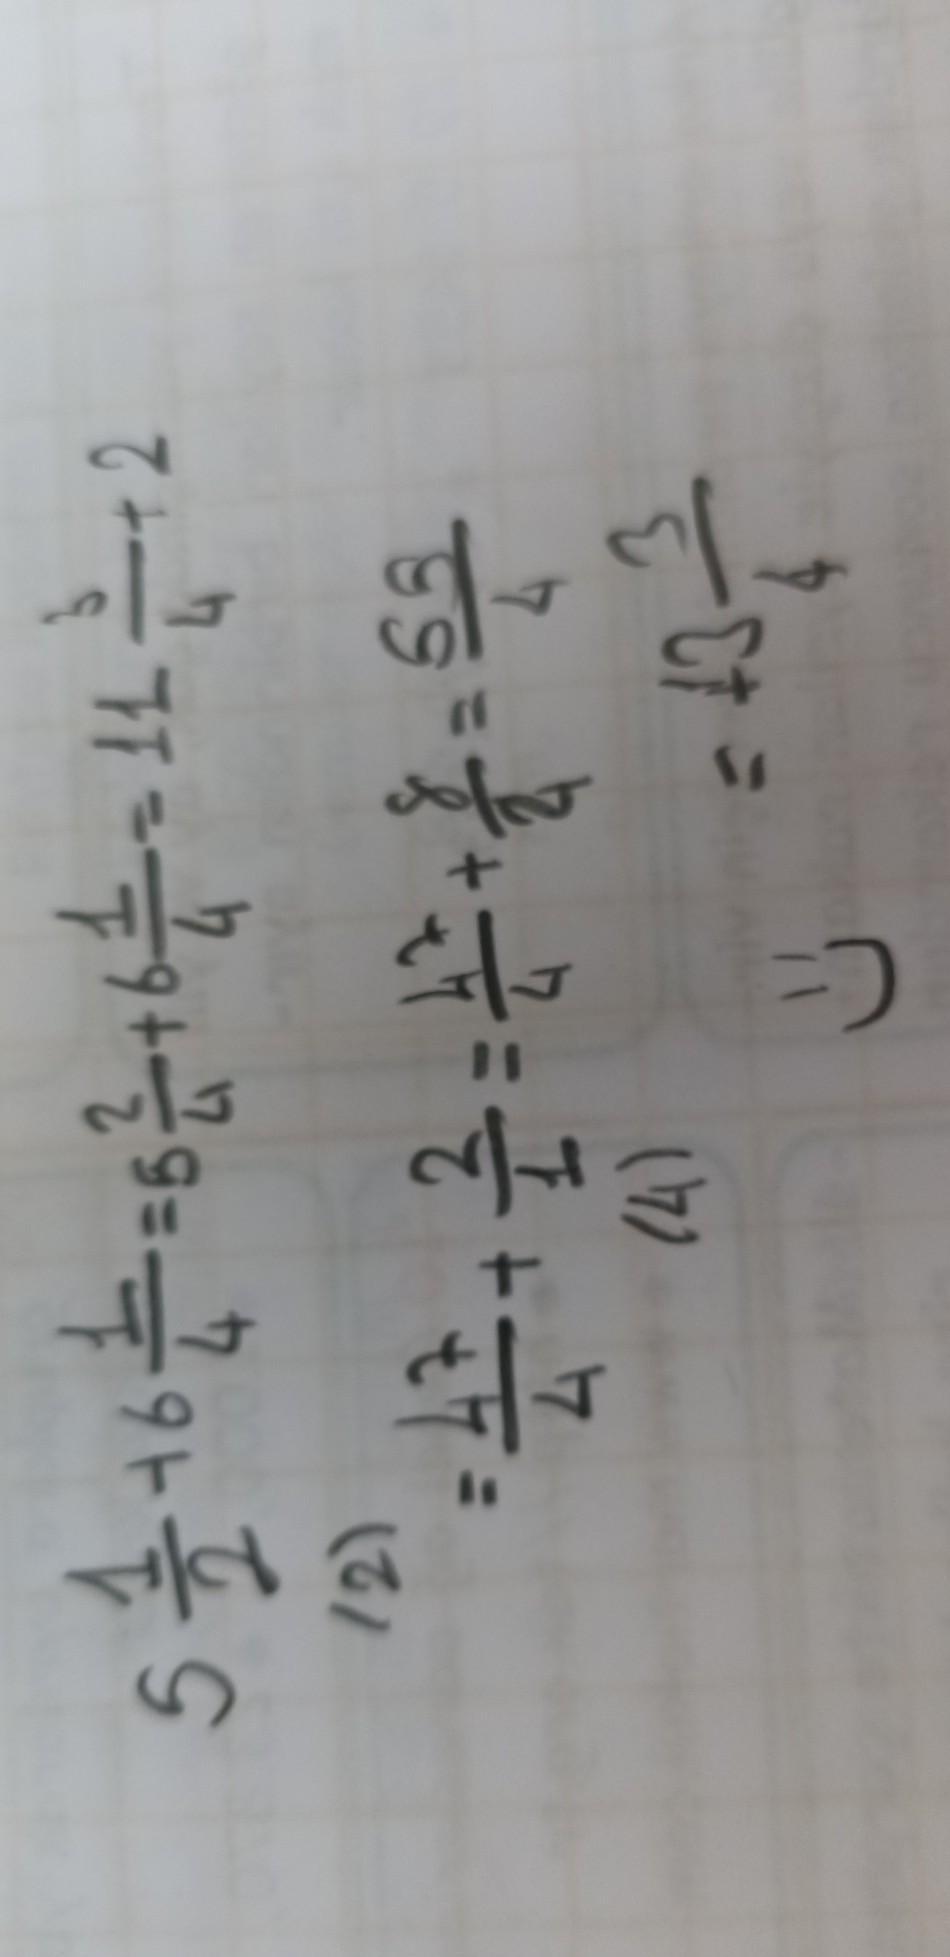 5 1/2 + 6 1/4 = 5 2/4 + 6 1/4 = 11 3/4 + 2
(2)
= 47/4 + 2/1 = 47/4 + 8/4 = 55/4
(4)
= 13 3/4
=)